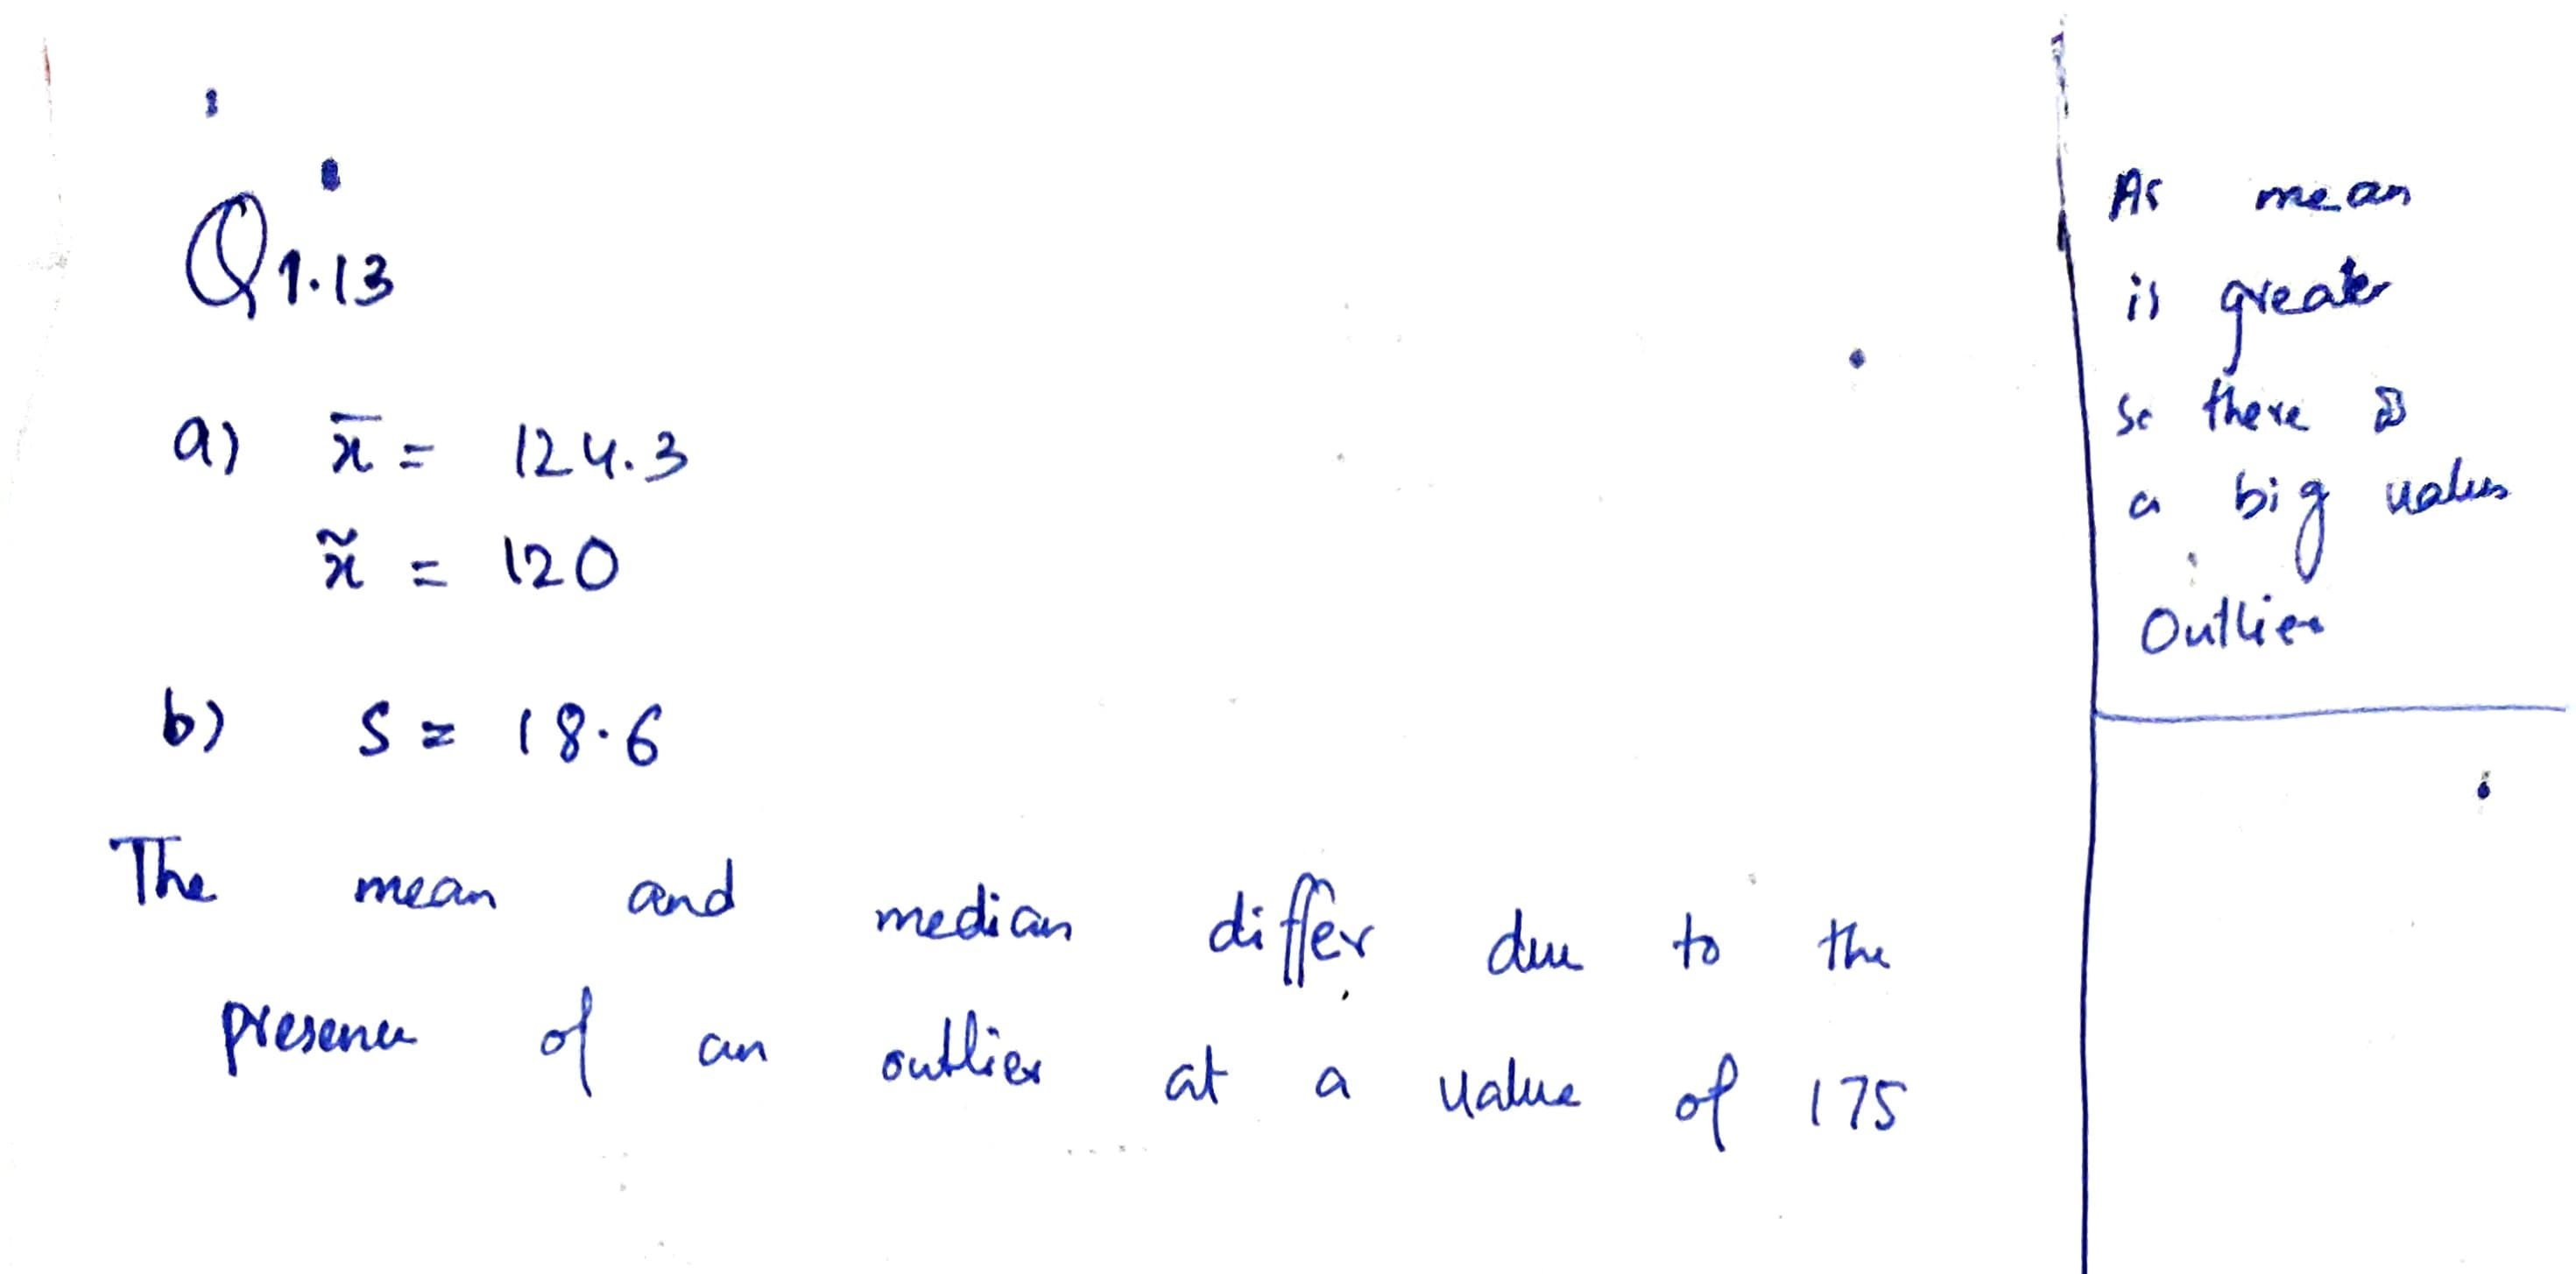 Q1.13
a) x̄ = 124.3
x̃ = 120
b) S = 18.6
The mean and median differ due to the
presence of an outlier at a value of 175
As mean
is greater
so there is
a big value
Outlier